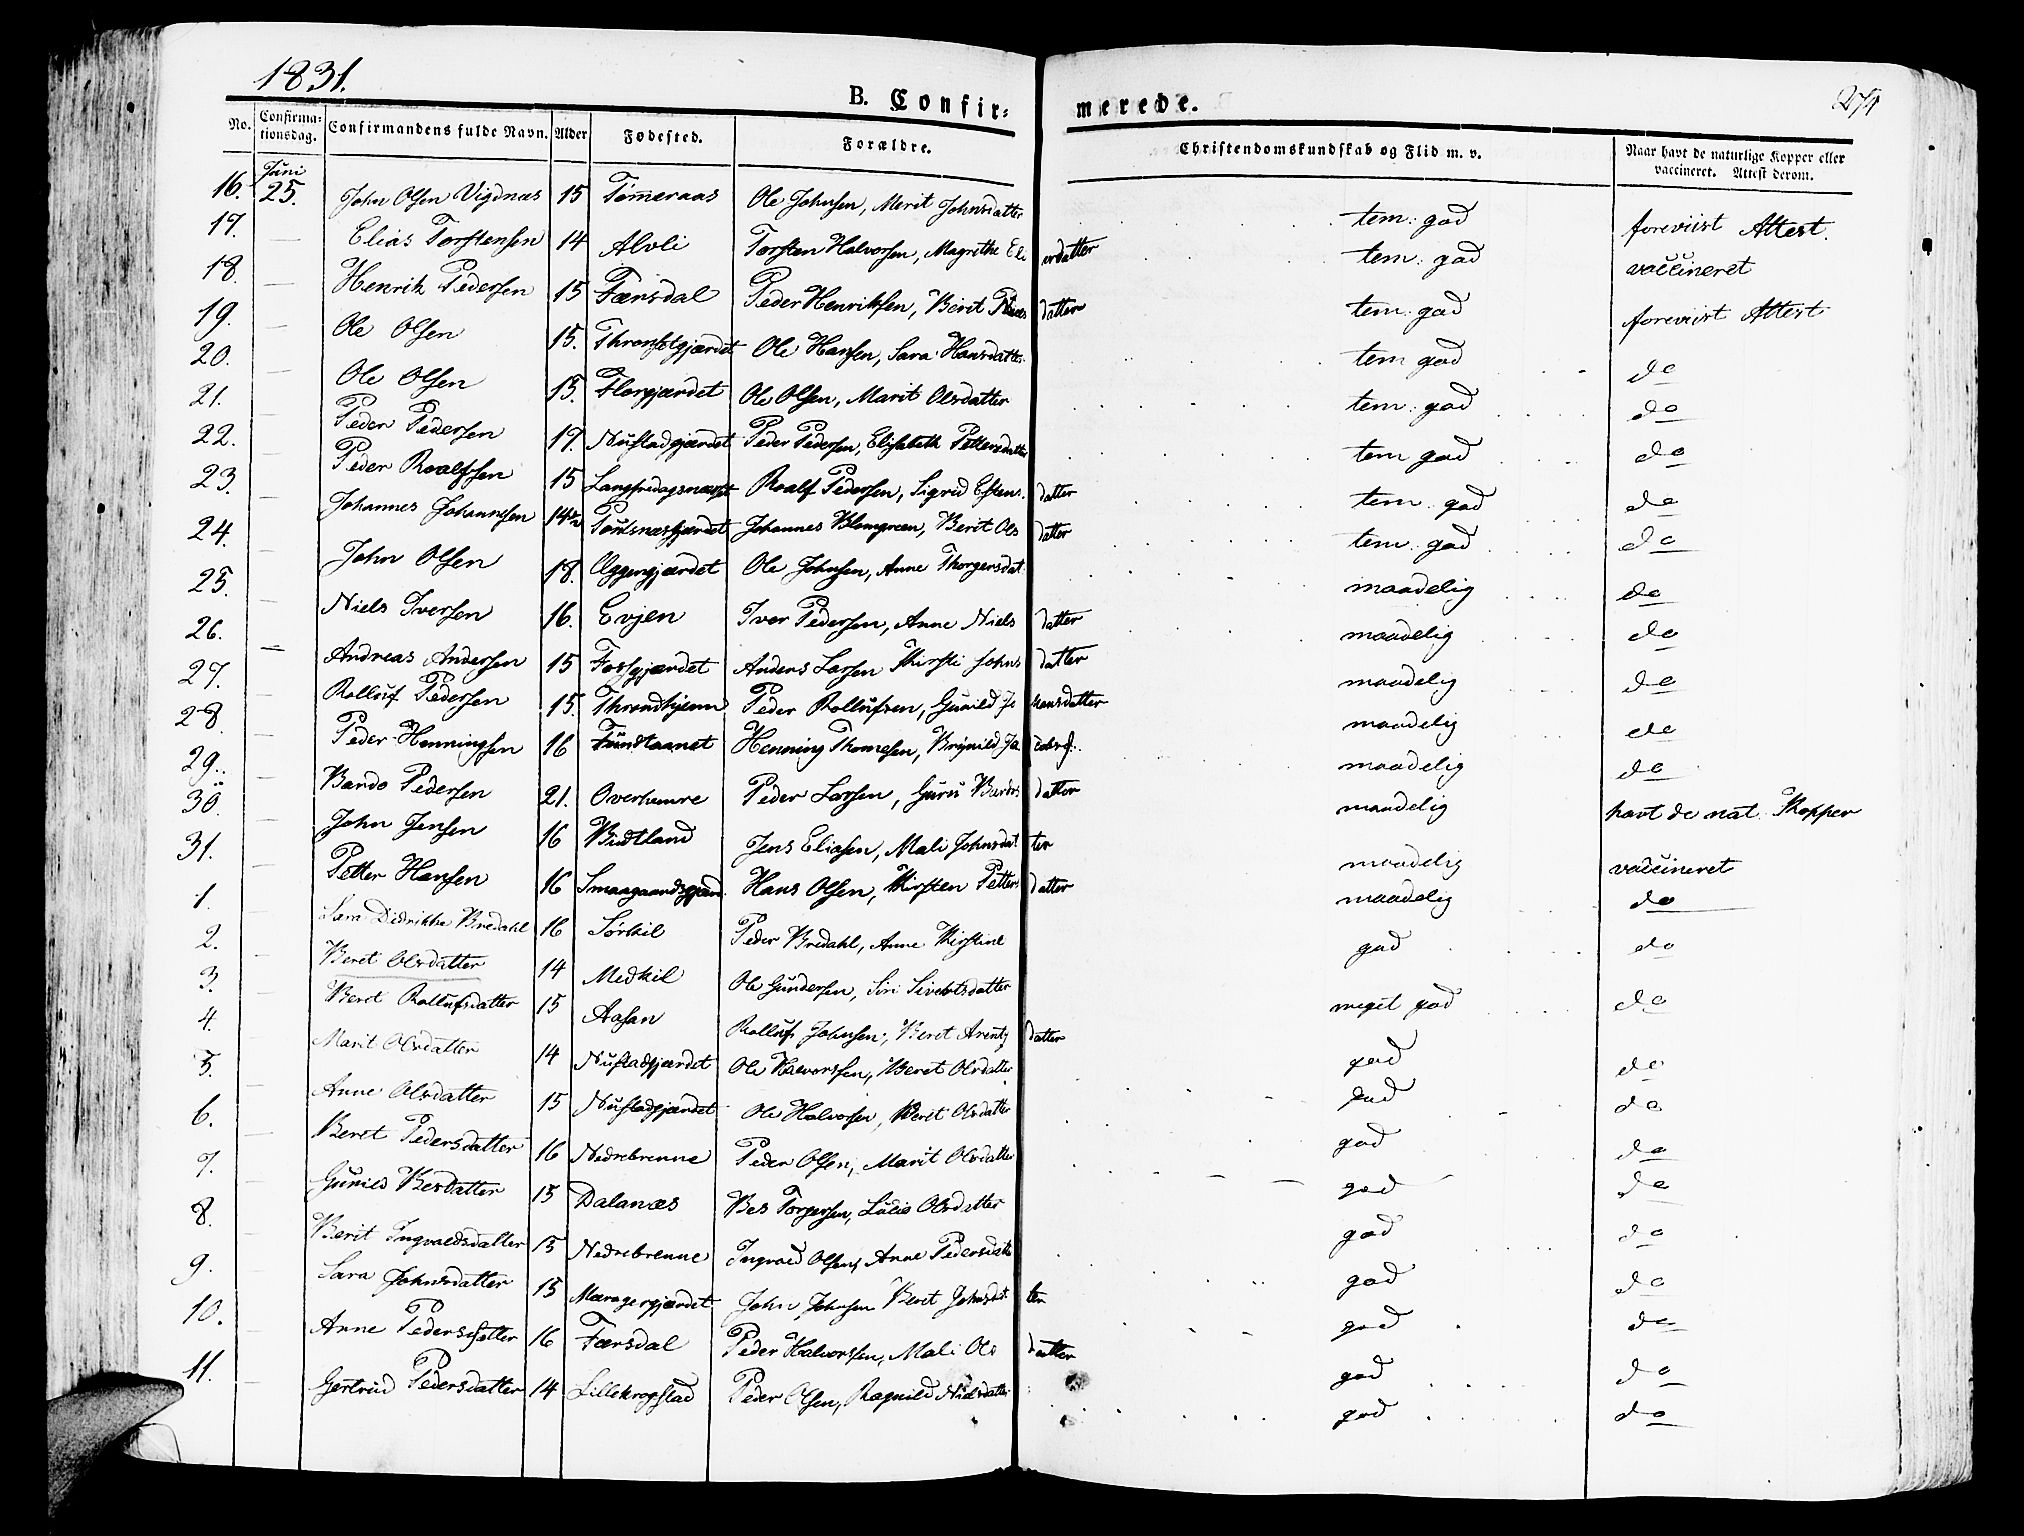 1831.
B. Confir-
merede.
274
No. Confirmationsdag. Confirmandens fulde Navn. Alder Fødested. Forældre. Christendomskundskab og Flid m. v. Naar havt de naturlige Kopper eller vaccineret. Attest derom.
16. Juni 25. John Olsen Vigdnæs 15 Tømeraas Ole Johnsen, Merit Johnsdatter tem: god foreviist Attest.
17. — Elias Torstensen 14 Alvli Torsten Halvorsen, Magrethe Eliasdatter tem: god vaccineret
18. — Henrik Pedersen 15 Færsdal Peder Henriksen, Berit datter tem: god foreviist Attest
19. — Ole Olsen 15. Ole Hansen, Sara Hansdatter tem god do
20. — Ole Olsen 15. Florgjærdet Ole Olsen, Marit Olsdatter tem: god do
21. Peder Pedersen 17. Nustadgjærdet Peder Pedersen, Elisabeth Pettersdatter tem god do
22. — Peder Roalfsen 15 Langfredagsnæsset Roalf Pedersen, Sigrid Estensdatter tem: god do
23. — Johannes Johannesen 14½ Johannes Blomgreen, Berit Olsdatter tem: god do
24. — John Olsen 18. Aggengjærdet Ole Johnsen, Anne Thorgersdat. maadelig do
25. — Niels Iversen 16. Evjen Iver Pedersen, Anne Nielsdatter maadelig do
26. — Andreas Andersen 15 Fossgjærdet Anders Larsen Kirsti Johnsdatter maadelig do
27. — Rolluf Pedersen 15. Throndhjem Peder Rollufsen, Gunild Johansdatter maadelig do
28. — Peder Henningsen 16 Fundtaanet Henning Thomesen, Brynild Jacobsd. maadelig do
29. — Bardo Pedersen 21. Overhemre Peder Larsen, Guru Bardosdatter maadelig havt de nat. Kopper
30. — John Jensen 16 Budtland Jens Eliasen, Mali Johnsdatter maadelig vaccineret
31. — Petter Hansen 16 Hans Olsen, Kirsten Pettersdatter maadelig do
1. — Sara Didrikke Bredahl 16 Sørkil Peder Bredahl, Anne Kirstine god do
2. — Beret Olsdatter 14 Medkil Ole Gundersen, Siri Sivertsdatter meget god do
3. — Beret Rollufsdatter 15 Aasan Rolluf Johnsen, Beret Arentsdatter god do
4. — Marit Olsdatter 14 Nustadgjærdet Ole Halvorsen, Beret Olsdatter god do
5. — Anne Olsdatter 15 Nustadgjærdet Ole Halvorsen, Beret Olsdatter god do
6. — Beret Pedersdatter 16 Nedrebrenne Peder Olsen, Marit Olsdatter god do
7. — Gunild Besdatter 15 Dalanæs Bes Torgersen, Lucie Olsdatter god do
8. — Berit Ingvaldsdatter 15 Nedrebrenne Ingvald Olsen, Anne Pedersdatter god do
9. — Sara Johnsdatter 15 Mæragergjærdet John Johnsen Beret Johnsdatter god do
10. — Anne Pedersdatter 16 Færsdal Peder Halvorsen, Mali Olsdatter god do
11. — Gertrud Pedersdatter 14 Lillekrogstad Peder Olsen, Ragnild Nielsdatter god do